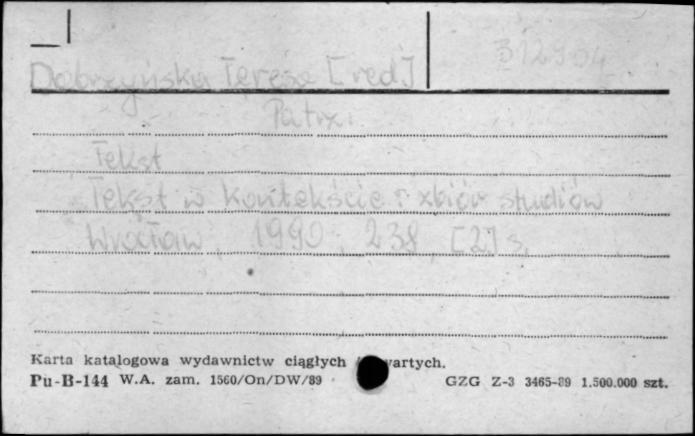 312904
Dobrzyńska Teresa [red]
Patrz:
Tekst
Tekst w kontekście : zbiór studiów
Wrocław, 1990, 238, [2] s.
Karta katalogowa wydawnictw ciągłych wartych.
Pu-B-144 W.A. zam. 1560/On/DW/89 GZG Z-3 3465-89 1.500.000 szt.